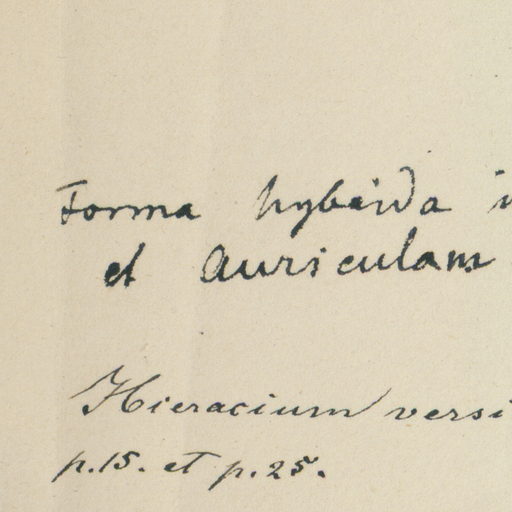 Forma hybrida
et Auriculam
Hieracium versi
p. 15. et p. 25.